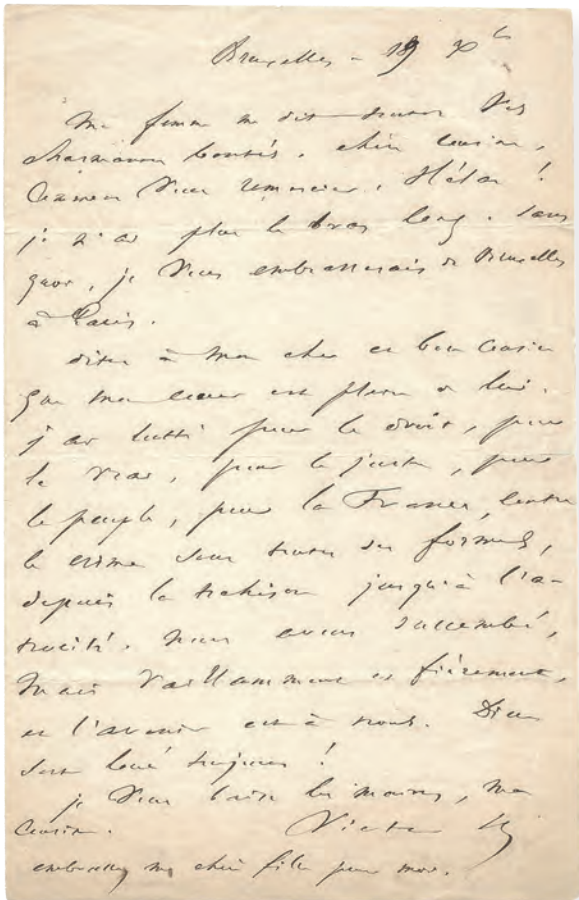 Bruxelles - 19 Xb
Ma femme me dit toutes vos
charmantes bontés, chère cousine,
laissez vous remercier. Hélas !
je n'ai plus le bras long. Sans
quoi, je vous embrasserais de Bruxelles
à Paris.
dites à mon cher et bon cousin
que mon cœur est plein de lui.
j'ai lutté pour le droit, pour
le vrai, pour le juste, pour
le peuple, pour la France, contre
le crime sous toutes ses formes,
depuis la trahison jusqu'à l'a-
trocité. Nous avons succombé,
mais vaillamment et fièrement,
et l'avenir est à nous. Dieu
soit loué toujours !
je vous baise les mains, ma
cousine. Victor H
embrassez ma chère fille pour moi.